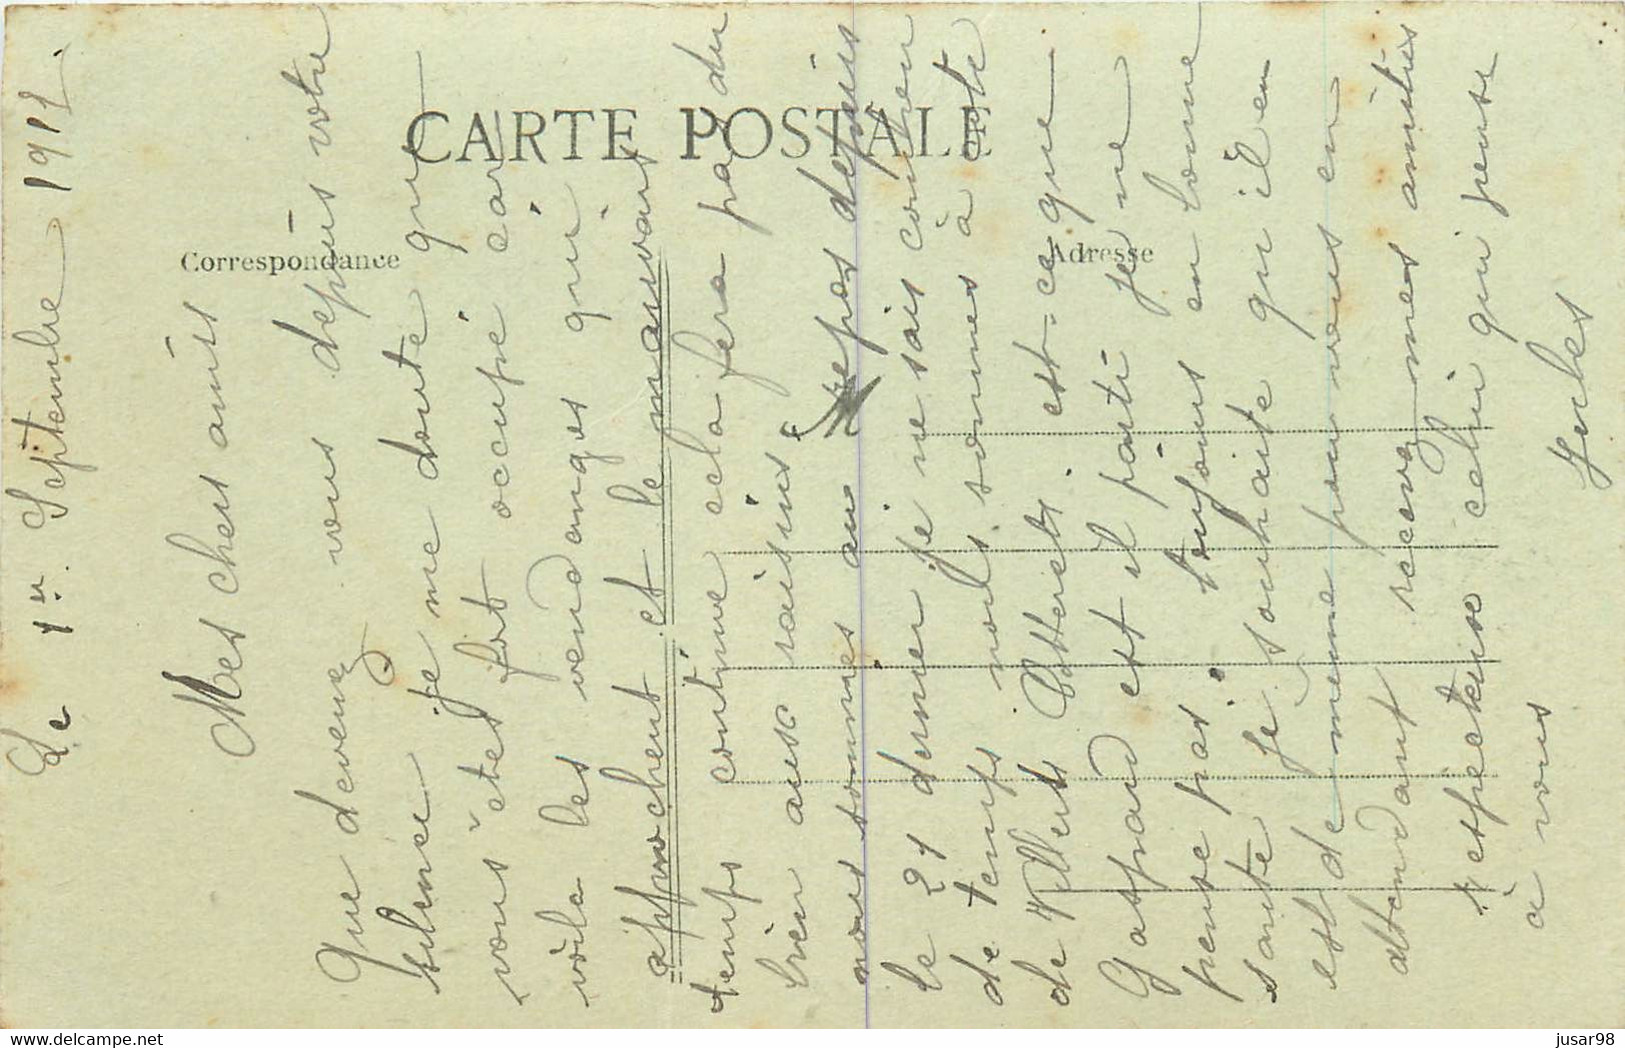 CARTE POSTALE
Correspondance
Adresse
Le 1er Septembre 1912.
Mes chers amis
Que devenez vous depuis votre
silence je me doute que
vous êtes fort occupé car
voila les vendanges qui
approchent et le mauvais
temps continue cela fera pas du
bien aux raisins.
nous sommes au repos depuis
le 21 dernier je ne sais combien
de temps nous sommes à côté
de Villers Cotterets. est-ce que
Gaspard est il parti je ne
pense pas. toujours en bonne
santé je souhaite qu'il en
est de même pour vous en
attendant recevez mes amitiés
respectueuse celui qui pense
à vous
Jules
delcampe.net
jusar98